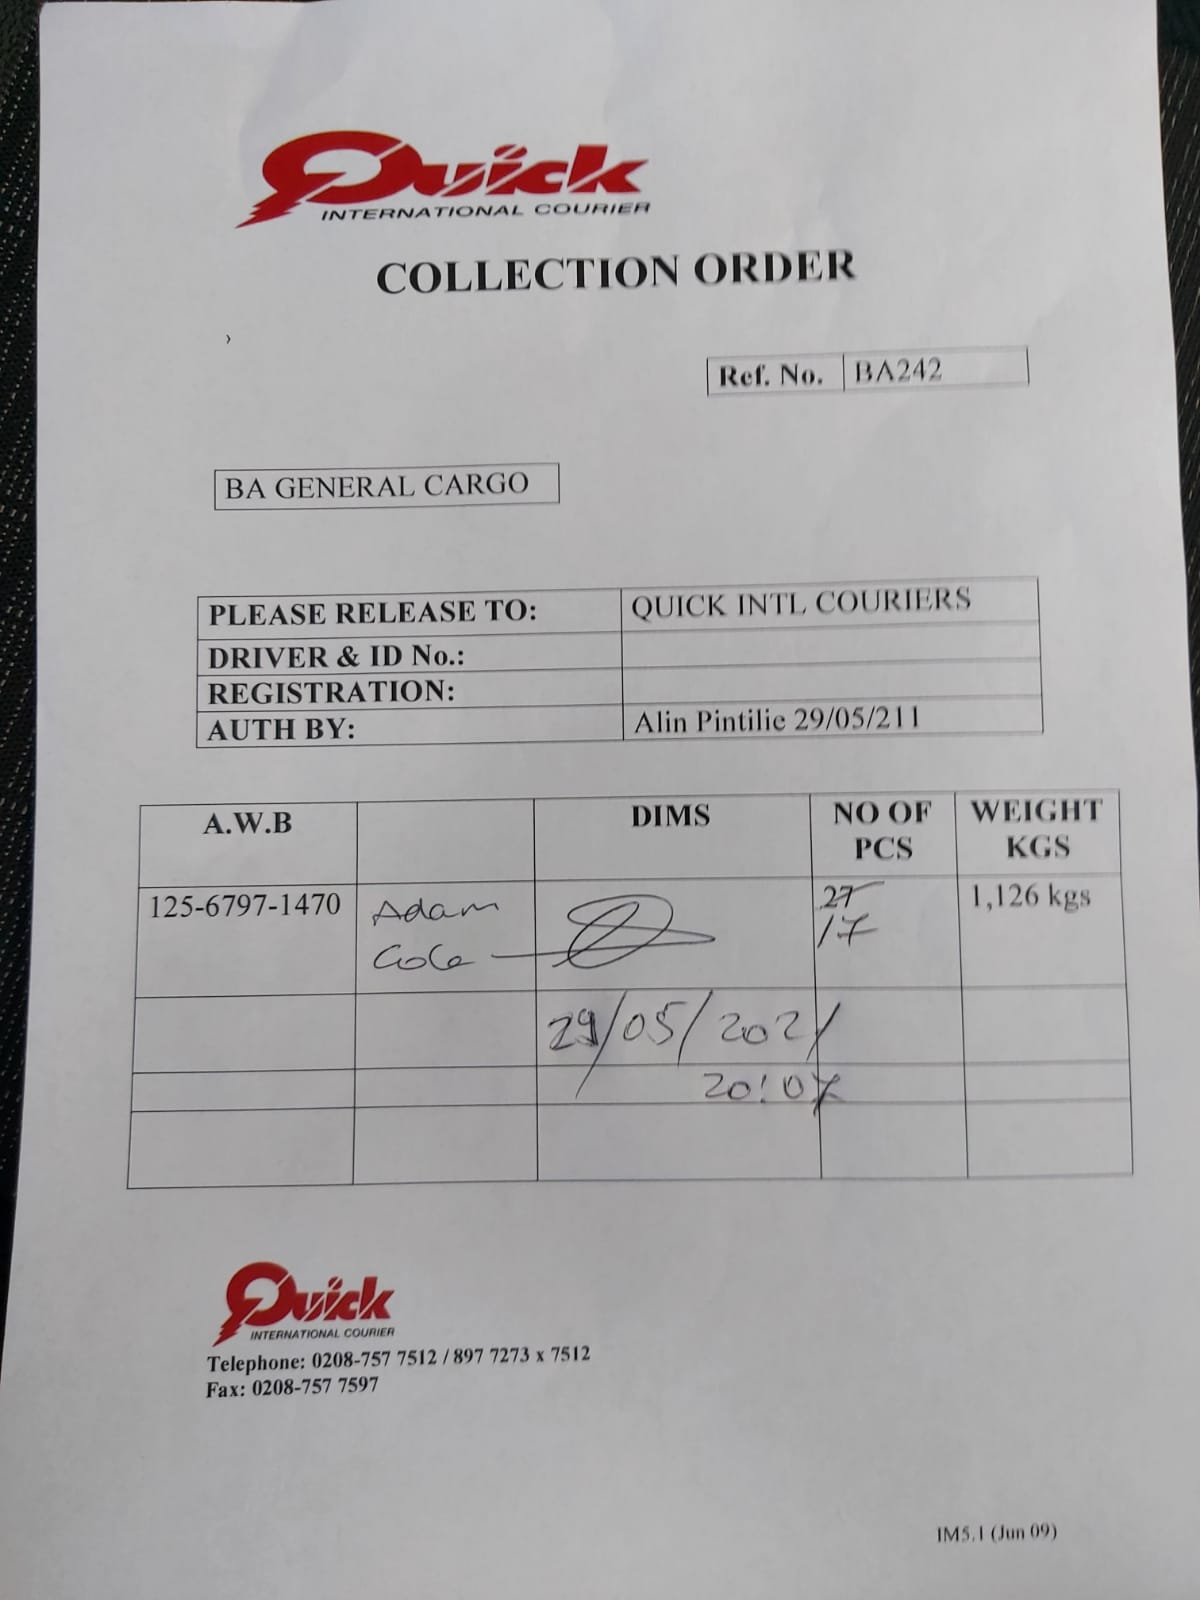 Quick
INTERNATIONAL COURIER
COLLECTION ORDER
Ref. No. BA242
BA GENERAL CARGO
PLEASE RELEASE TO: QUICK INTL COURIERS
DRIVER & ID No.:
REGISTRATION:
AUTH BY: Alin Pintilie 29/05/211
A.W.B DIMS NO OF PCS WEIGHT KGS
125-6797-1470 Adam 27 1,126 kgs
Cole 17
29/05/2021
20:07
Quick
INTERNATIONAL COURIER
Telephone: 0208-757 7512 / 897 7273 x 7512
Fax: 0208-757 7597
IM5.1 (Jun 09)